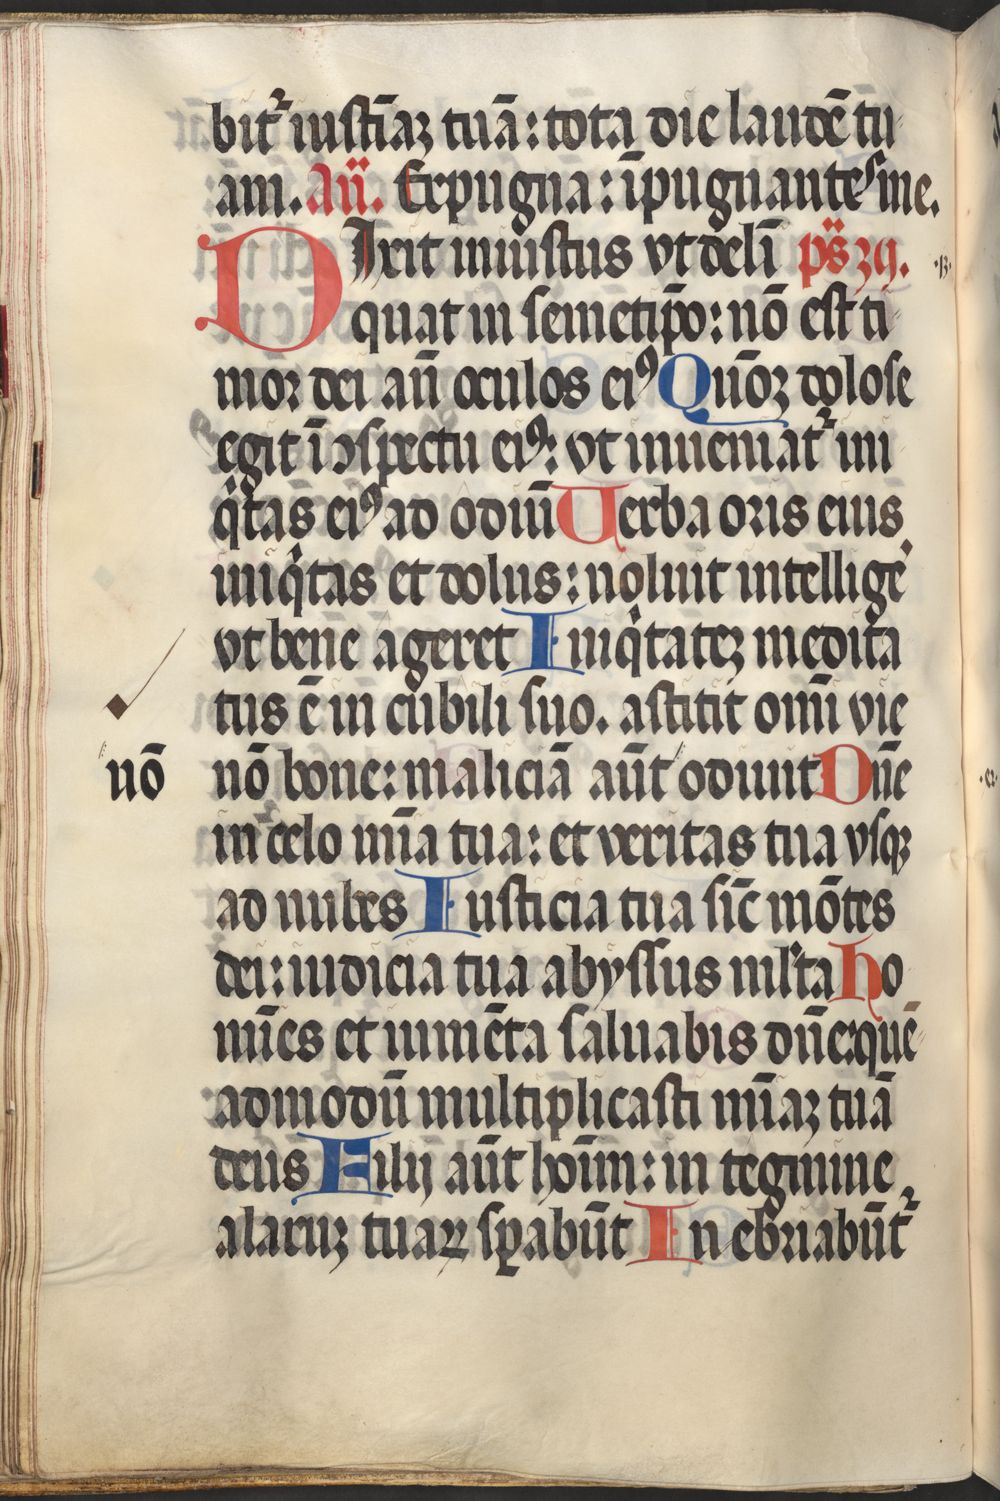 bit᷑ iusticiaꝫ tuā: tota die laudē tu
am. Añ. Expugna: īpugnantes me.
Dixit iniustus vt deli ps 35.
quat in semetip̄o: nō est ti
mor dei añ oculos eiꝰ Quōꝫ dolose
egit ī ꝯspectu eiꝰ: vt inueniat᷑ ini
qͥtas eiꝰ ad odiū Uerba oris eius
iniqͥtas et dolus: noluit intellige᷑
vt bene ageret Iniqͥtateꝫ medita
tus ē in cubili suo. astitit om̄i vie
nō
nō bone: maliciā aūt odiuit Dn̄e
in celo mīa tua: et veritas tua vsqꝫ
ad nubes Iusticia tua sic̄ mōtes
dei: iudicia tua abyssus ml̓ta Ho
mīes et iumēta saluabis dn̄e: quē
admodū multiplicasti mīaꝫ tuā
deus Filij aūt hoīm: in tegmine
alaruꝫ tuaꝝ sꝑabūt Inebriabūt᷑